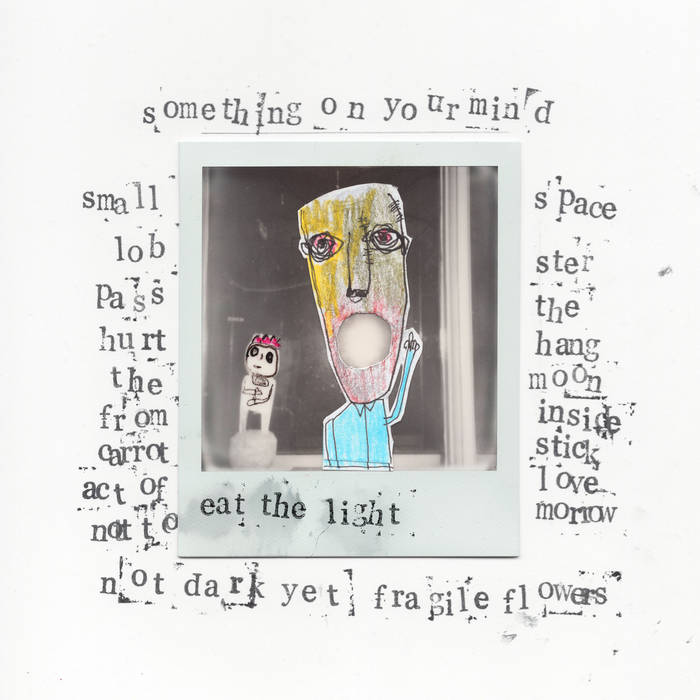 something on your mind
small space
lob ster
pass the
hurt hang
the moon
from inside
carrot stick
act of love
not to morrow
eat the light
not dark yet fragile flowers